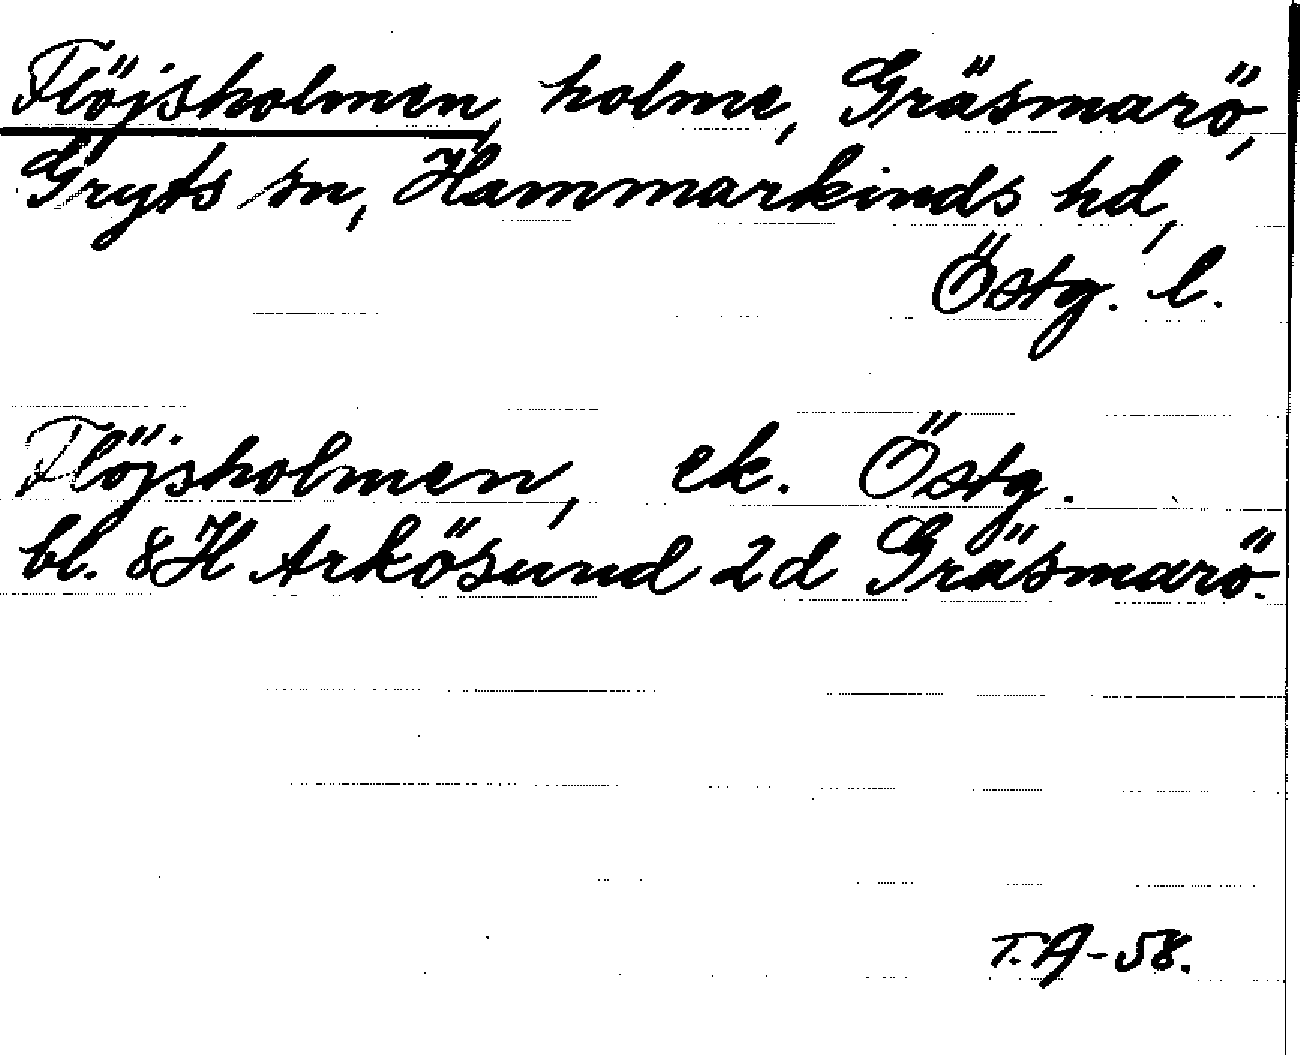 Flöjsholmen, holme, Gräsmarö,
Gryts sn, Hammarkinds hd,
Östg. l.
Flöjsholmen, ek. Östg.
bl. 8H Arkösund 2d Gräsmarö.
T.A-58.